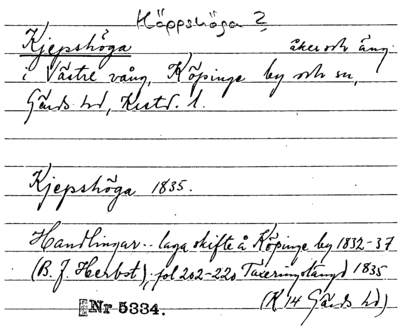 Käppshöga?
Kjepshöga åker och äng
i Västre vång, Köpinge by och sn,
Gärds hd, Krstd. l.
Kjepshöga 1835.
Handlingar.. laga skifte å Köpinge by 1832-37
(B. J. Herbst), fol 202-220 Taxeringslängd 1835
(K 14 Gärds hd)
Nr 5334.